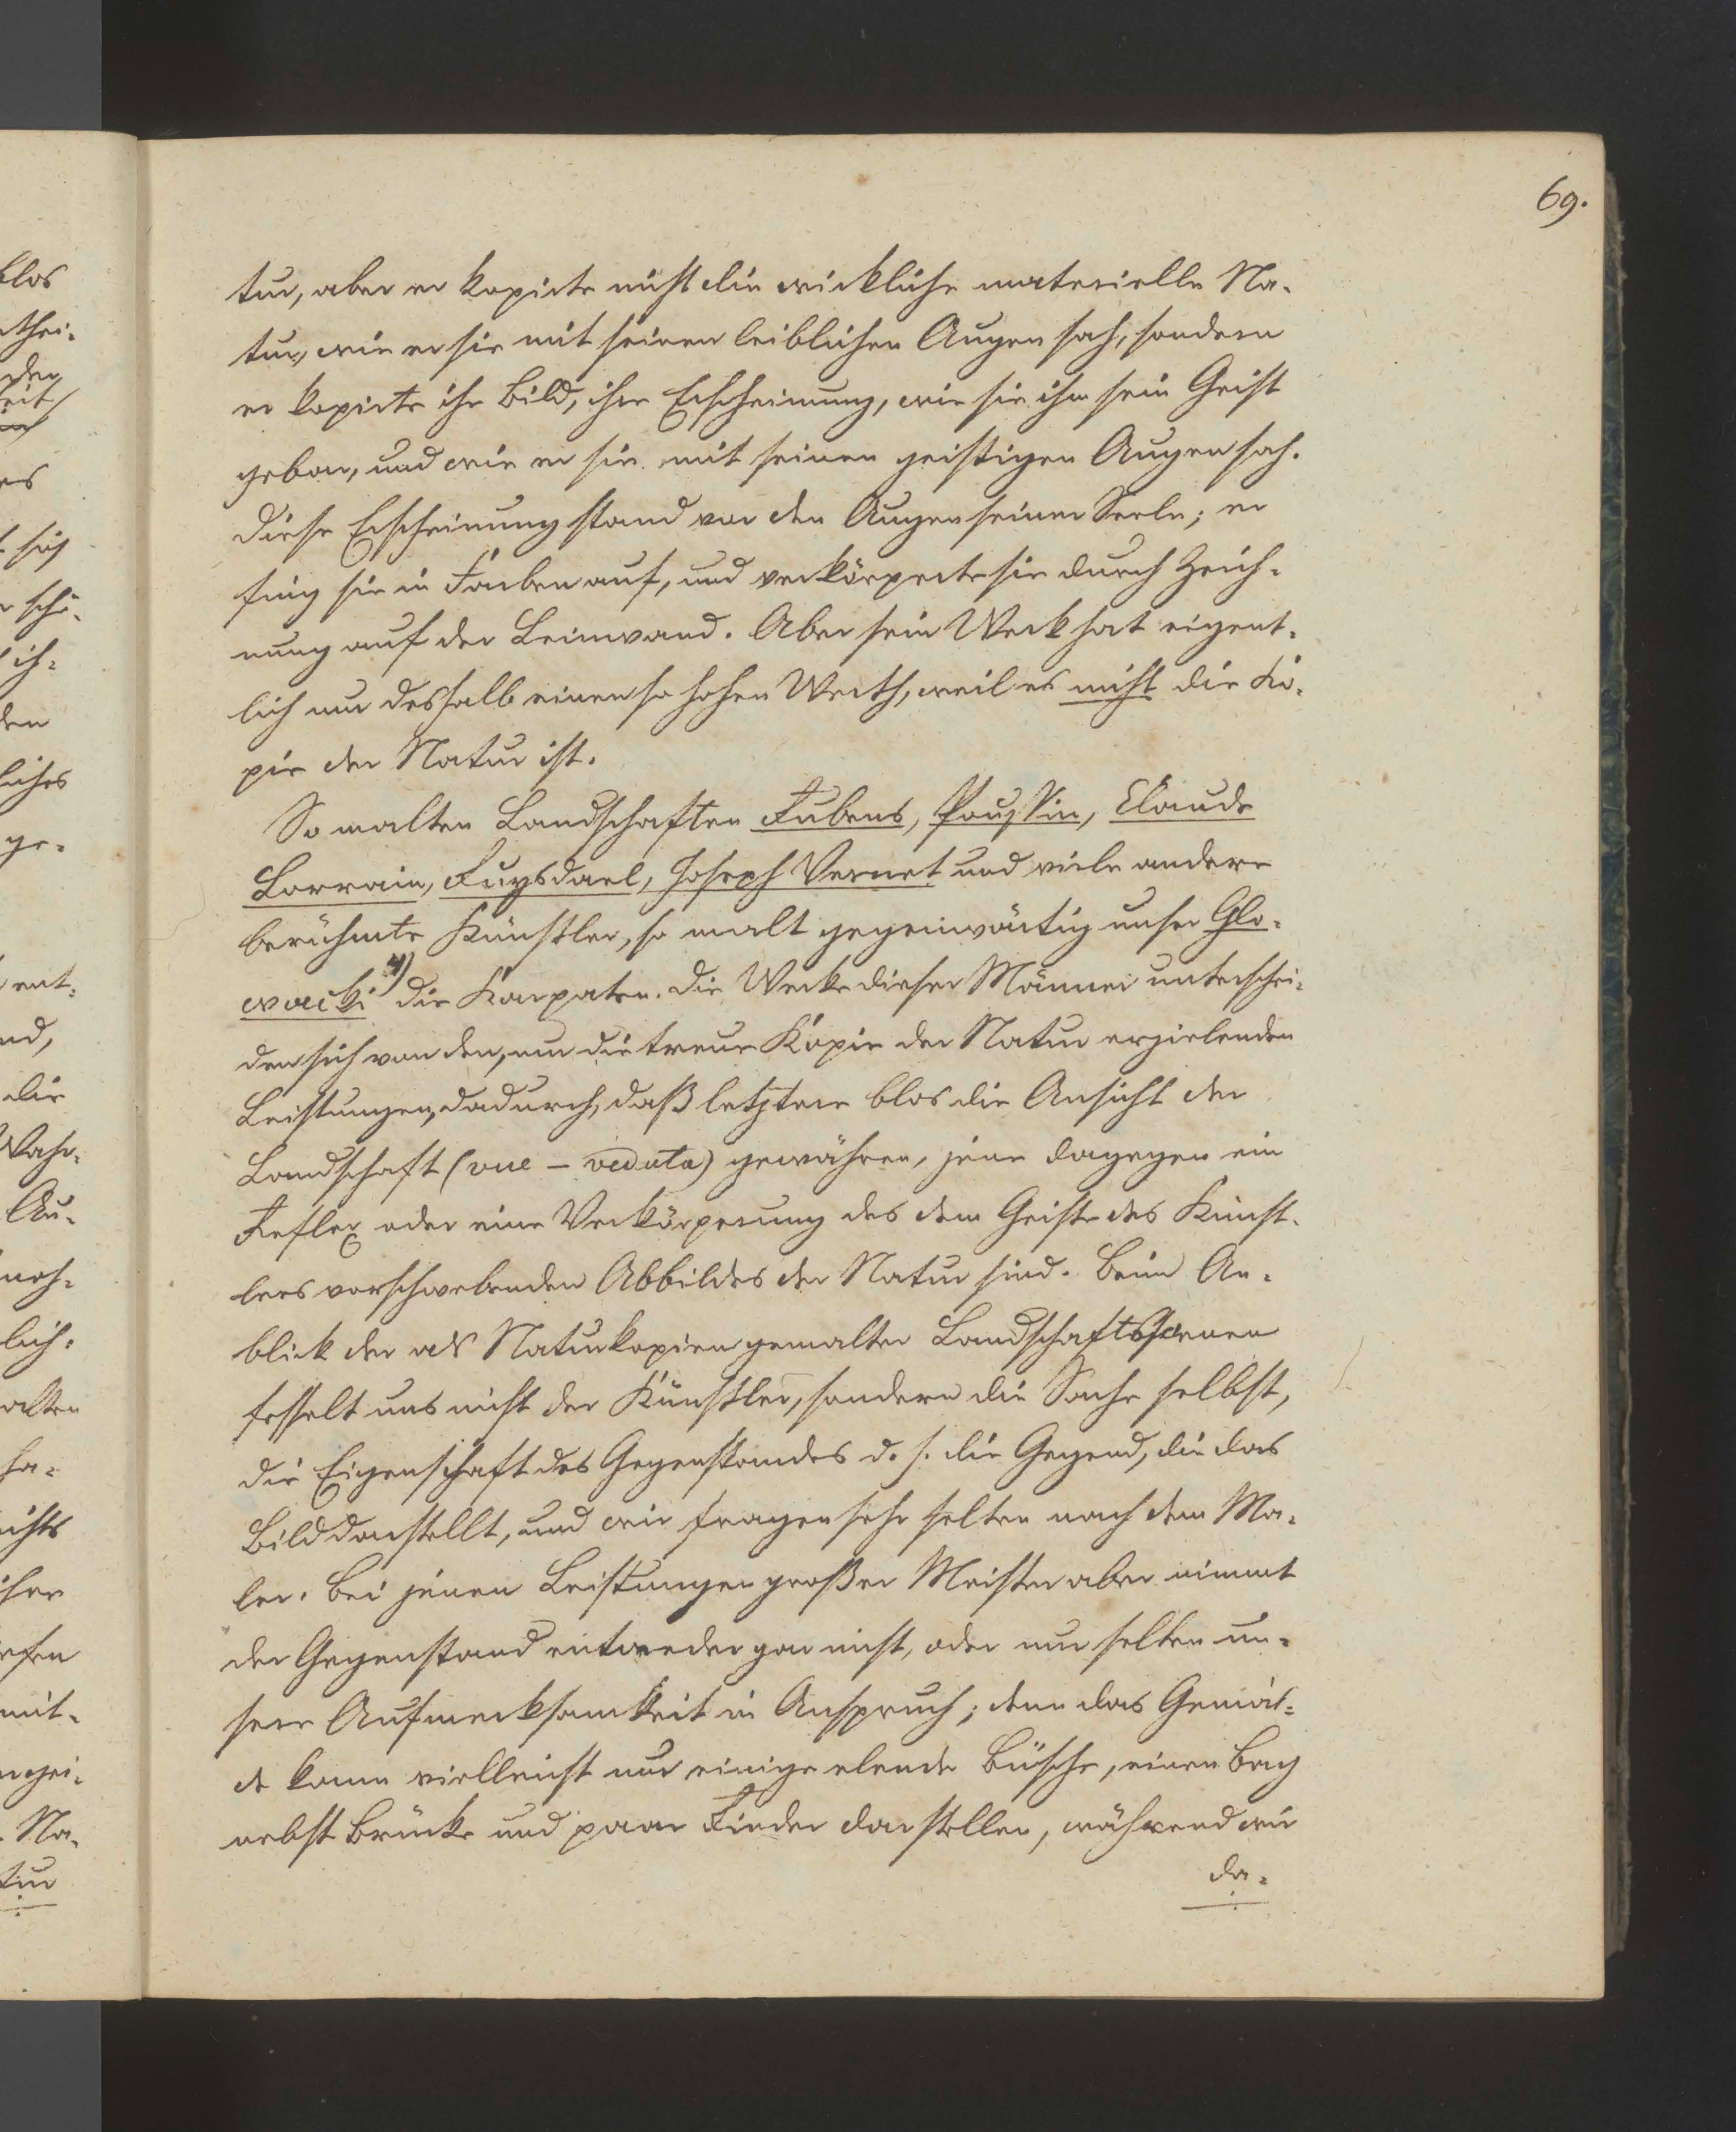 69.
tur, aber er kopirte nicht die wirkliche materielle Na-
tur, wie er sie mit seinen leiblichen Augen sah, sondern
er kopirte ihr Bild, ihre Erscheinung, wie sie ihm sein Geist
gebar, und wie er sie mit seinen geistigen Augen sah.
Diese Erscheinung stand vor den Augen seiner Seele; er
fing sie in Farben auf, und verkörperte sie durch Zeich-
nung auf der Leinwand. Aber sein Werk hat eigent-
lich nur deshalb einen so hohen Werth, weil es nicht die Ko-
pie der Natur ist.
So malten Landschaften Rubens, Poussin, Claude
Lorrain, Ruysdael, Joseph Vernet und viele andere
berühmte Künstler, so malt gegenwärtig unser Glo-
wacki 4) die Karpaten. Die Werke dieser Männer unterschei-
den sich von den, nur die treue Kopie der Natur erzielenden
Leistungen, dadurch, daß letztere blos die Ansicht der
Landschaft (vue - veduta) gewähren, jene dagegen ein
Reflex oder eine Verkörperung des dem Geiste des Künst-
lers vorschwebenden Abbildes der Natur sind. Beim An-
blick der als Naturkopien gemalten Landschaftsscenen
fesselt uns nicht der Künstler, sondern die Sache selbst,
die Eigenschaft des Gegenstandes d. h. die Gegend, die das
Bild darstellt, und wir fragen sehr selten nach dem Ma-
ler. Bei jenen Leistungen großer Meister aber nimmt
der Gegenstand entweder gar nicht, oder nur selten un-
sere Aufmerksamkeit in Anspruch; denn das Gemäl-
de kann vielleicht nur einige elende Büsche, einen Bach
nebst Brücke und paar Rinder darstellen, während wir
da-
blos
es
den
liches
ge-
ent-
nd,
die
Wahr-
Au-
lich-
alten
ha-
mit-
Na-
tur